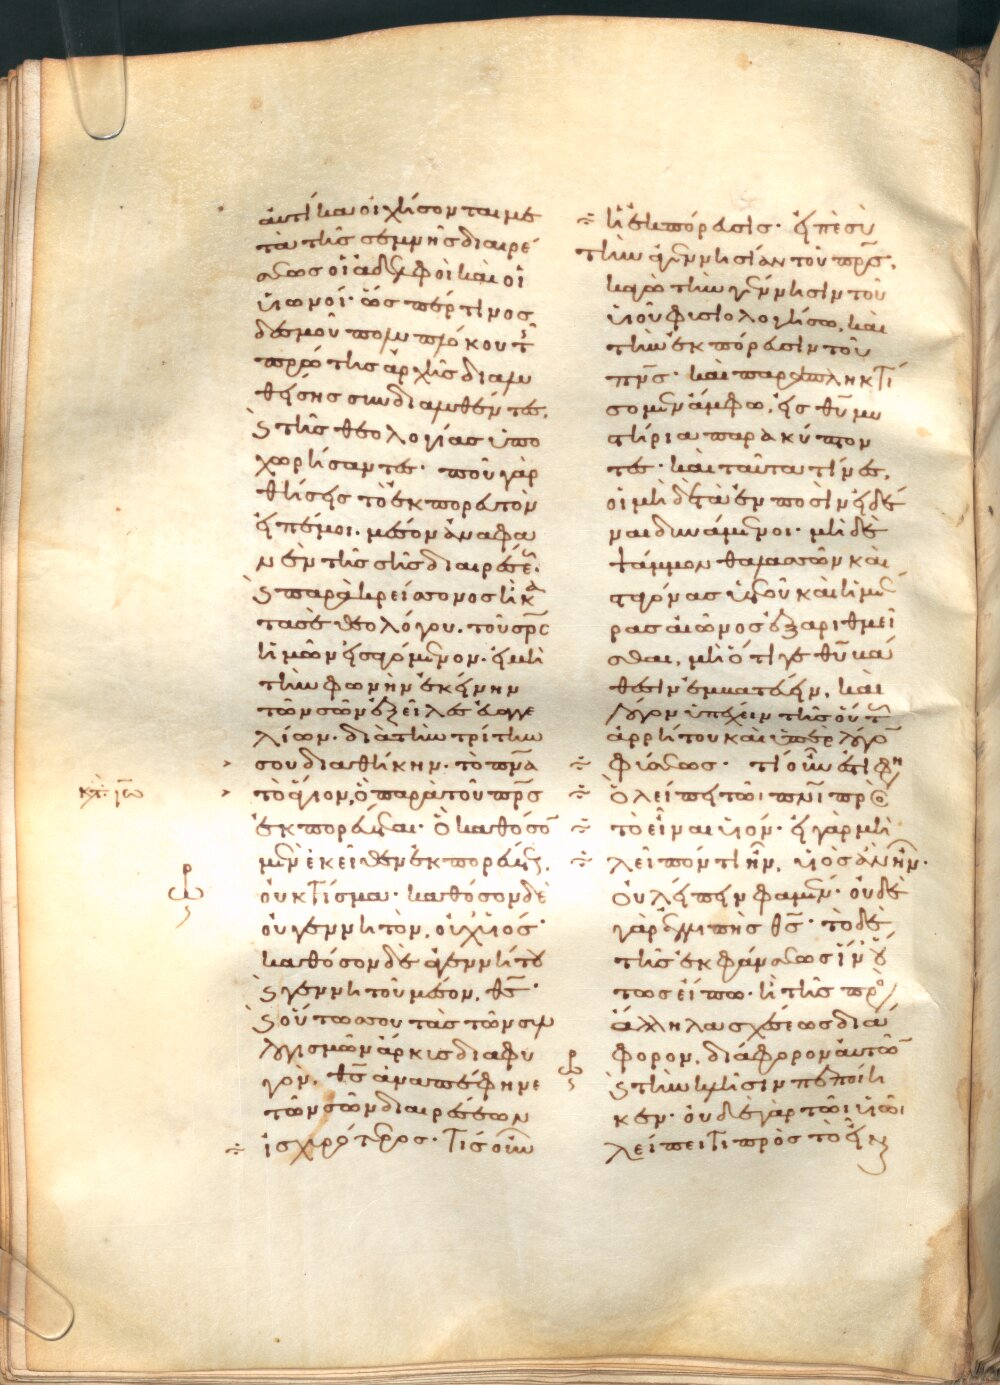 ἀυτίκα οἰχήσονται με
τὰ τῆς σεμνῆς διαιρέ
σεως οἱ ἀδελφοὶ καὶ οἱ
υἱωνοί· ὥσπερ τινος
δεσμοῦ πολυπλόκου τ
πρώτης ἀρχῆς διαλυ
θείσης συνδιαλυθέντες,
ϗ τῆς θεολογίας ὑπο
χωρήσαντες· ποῦ γὰρ
θήσεις τὸ ἐκπορευτὸν
εἰπέ μοι. μέσον ἀναφα
νὲν τῆς σῆς διαιρέσε·
ϗ παρὰ κρείσσονος ἢ κα
τασὲ θεολόγου. τοῦ σρς
ἡμῶν εἰσαγόμενον· εἰ μὴ
τὴν φωνὴν ἐκείνην
τῶν σῶν ἐξεῖλες ἐυαγγε
λίων. διὰ τὴν τρίτην
σου διαθήκην. τὸ πνα
τὸ ἅγιον, ὃ παρὰ τοῦ πρς
κατ ιω
ἐκπορεύεται· ὃ καθόσο
μὲν ἐκεῖθεν ἐκπορεύετ,
οὐ κτίσμα· καθόσον δὲ
οὐ γεννητὸν, οὐχ υἱός·
καθόσον δὲ ἀγεννήτου
ϗ γεννητοῦ μέσον, θς·
ϗ οὕτω σου τὰς τῶν συλ
λογισμῶν ἄρκυς διαφυ
γὸν, θς ἀναπέφηνε
τῶν σῶν διαιρέσεων
ἰσχυρότερος· τίς οὖν
ἡ ἐκπόρευσις· εἰπὲ σὺ
τὴν ἀγεννησίαν τοῦ πρς·
κἀγὼ τὴν γέννησιν τοῦ
υἱοῦ φυσιολογήσω, καὶ
τὴν ἐκπόρευσιν τοῦ
πνς· καὶ παραπληκτί
σομεν ἄμφω, εἰς θυ μυ
στήρια παρακύπτον
τες· καὶ ταῦτα τίνες,
οἱ μὴ δὲ τὰ ἐν ποσὶν εἰδέ
ναι δυνάμενοι· μὴ δὲ
ψάμμον θαλασσῶν καὶ
σταγόνας ὑετοῦ καὶ ἡμέ
ρας αἰῶνος ἐξαριθμεῖ
σθαι, μὴ ὅτι γε θυ βά
θεσιν ἐμβατεύειν, καὶ
λόγον ὑπέχειν τῆς οὕτ
ἀρρήτου καὶ ὑπὲρ λόγο
φύσεως· τί οὖν ἐστι φη
ὃ λείπει τῶι πνι πρὸς
τὸ εἶναι υἱόν· εἰ γὰρ μὴ
λεῖπόν τι ἦν, υἱὸς ἂν ἦν·
Οὐ λείπειν φαμέν· οὐδὲ
γὰρ ἐλλιπὴς θς· τὸ δὲ
τῆς ἐκφάνσεως ἵν οὕ
τως εἴπω· ἢ τῆς πρὸς
ἄλληλα σχέσεως διά
φορον, διάφορον ἀυτῶ
ϗ τὴν κλῆσιν πεποίη
κεν· οὐδὲ γὰρ τῶι υἱῶι
λείπει τι πρὸς τὸ εἶν